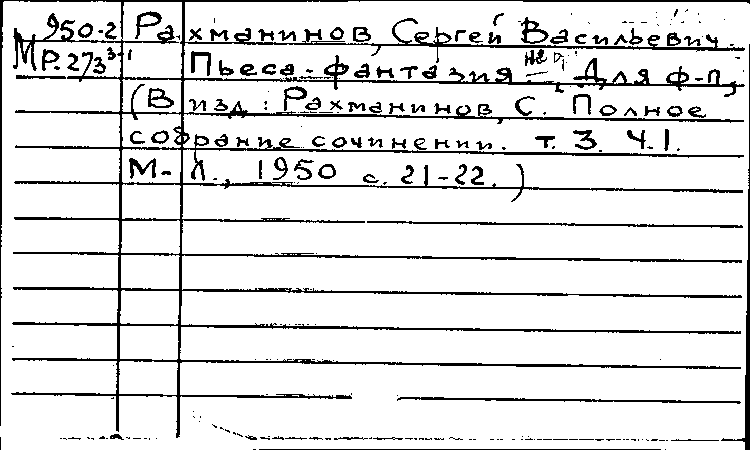 950-2 Рахманинов, Сергей Васильевич.
МР.273 3-1 Пьеса-фантазия — , Для ф-п,
(В изд: Рахманинов, С. Полное
собрание сочинении. т. 3. Ч.1.
М-Л., 1950 с. 21-22.)